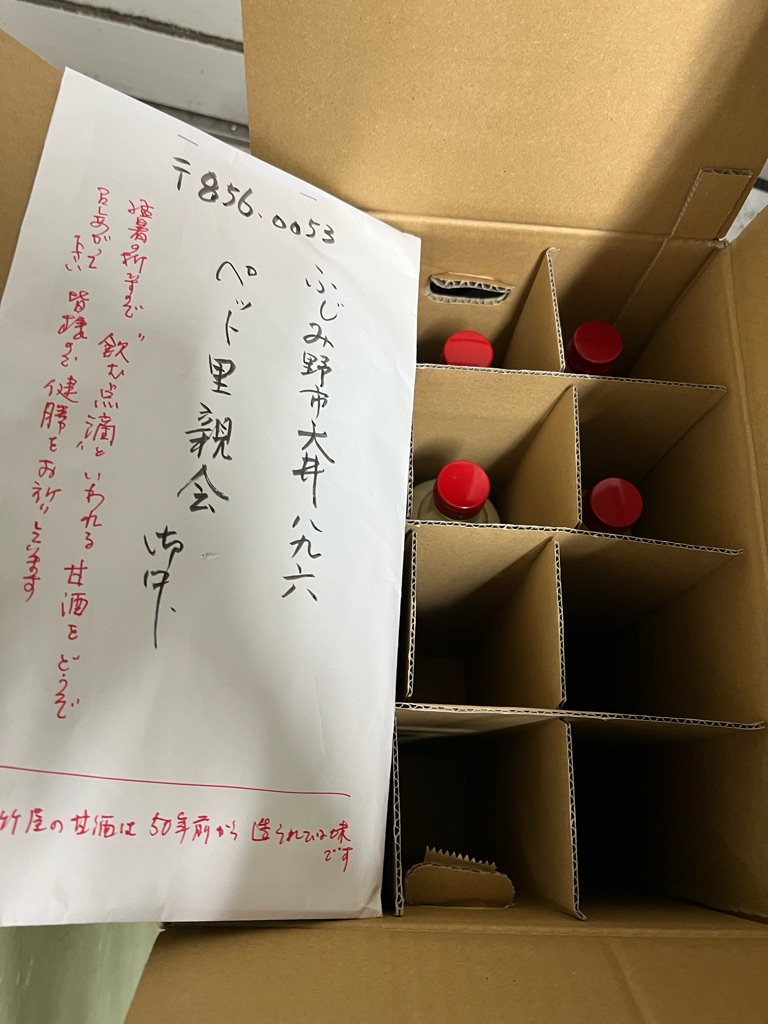 〒856.0053
ふじみ野市大井八九六
ペット里親会
御中、
猛暑の折ですので"飲む点滴"といわれる甘酒をどうぞ
召しあがって下さい 皆様のご健勝をお祈りしています
竹屋の甘酒は50年前から造られている味
です